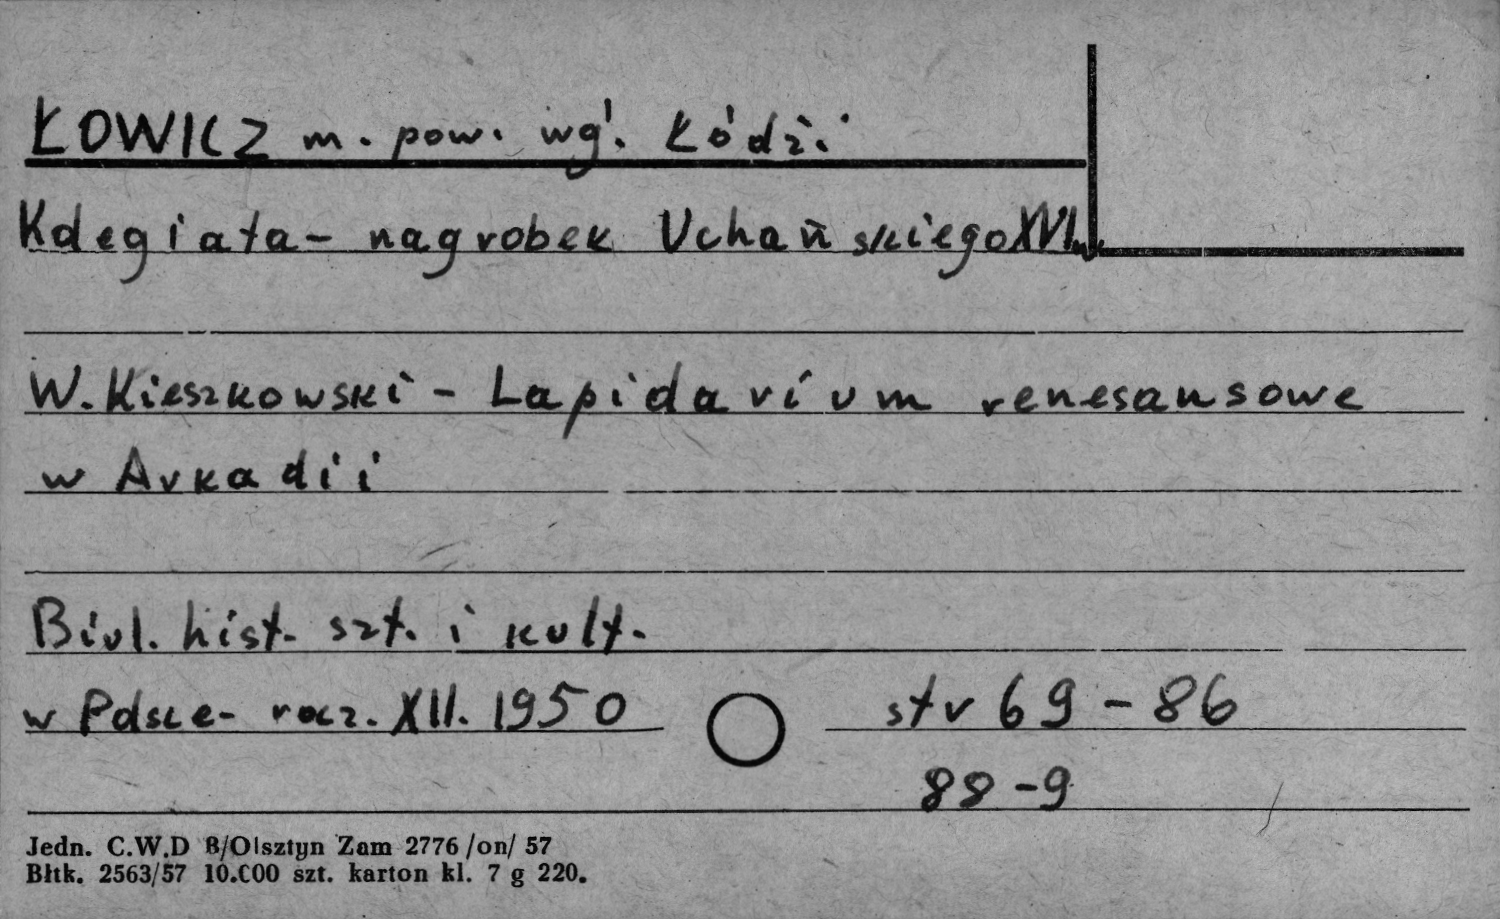 ŁOWICZ m. pow. wg. Łódź.
Kolegiata – nagrobek Uchańskiego XVI w.
W. Kieszkowski – Lapidarium renesansowe
w Arkadii
Biul. hist. szt. i kult.
w Polsce – rocz. XII. 1950 str 69 – 86
88 – 9
Jedn. C.W.D B/Olsztyn Zam 2776 /on/ 57
Błtk. 2563/57 10.000 szt. karton kl. 7 g 220.